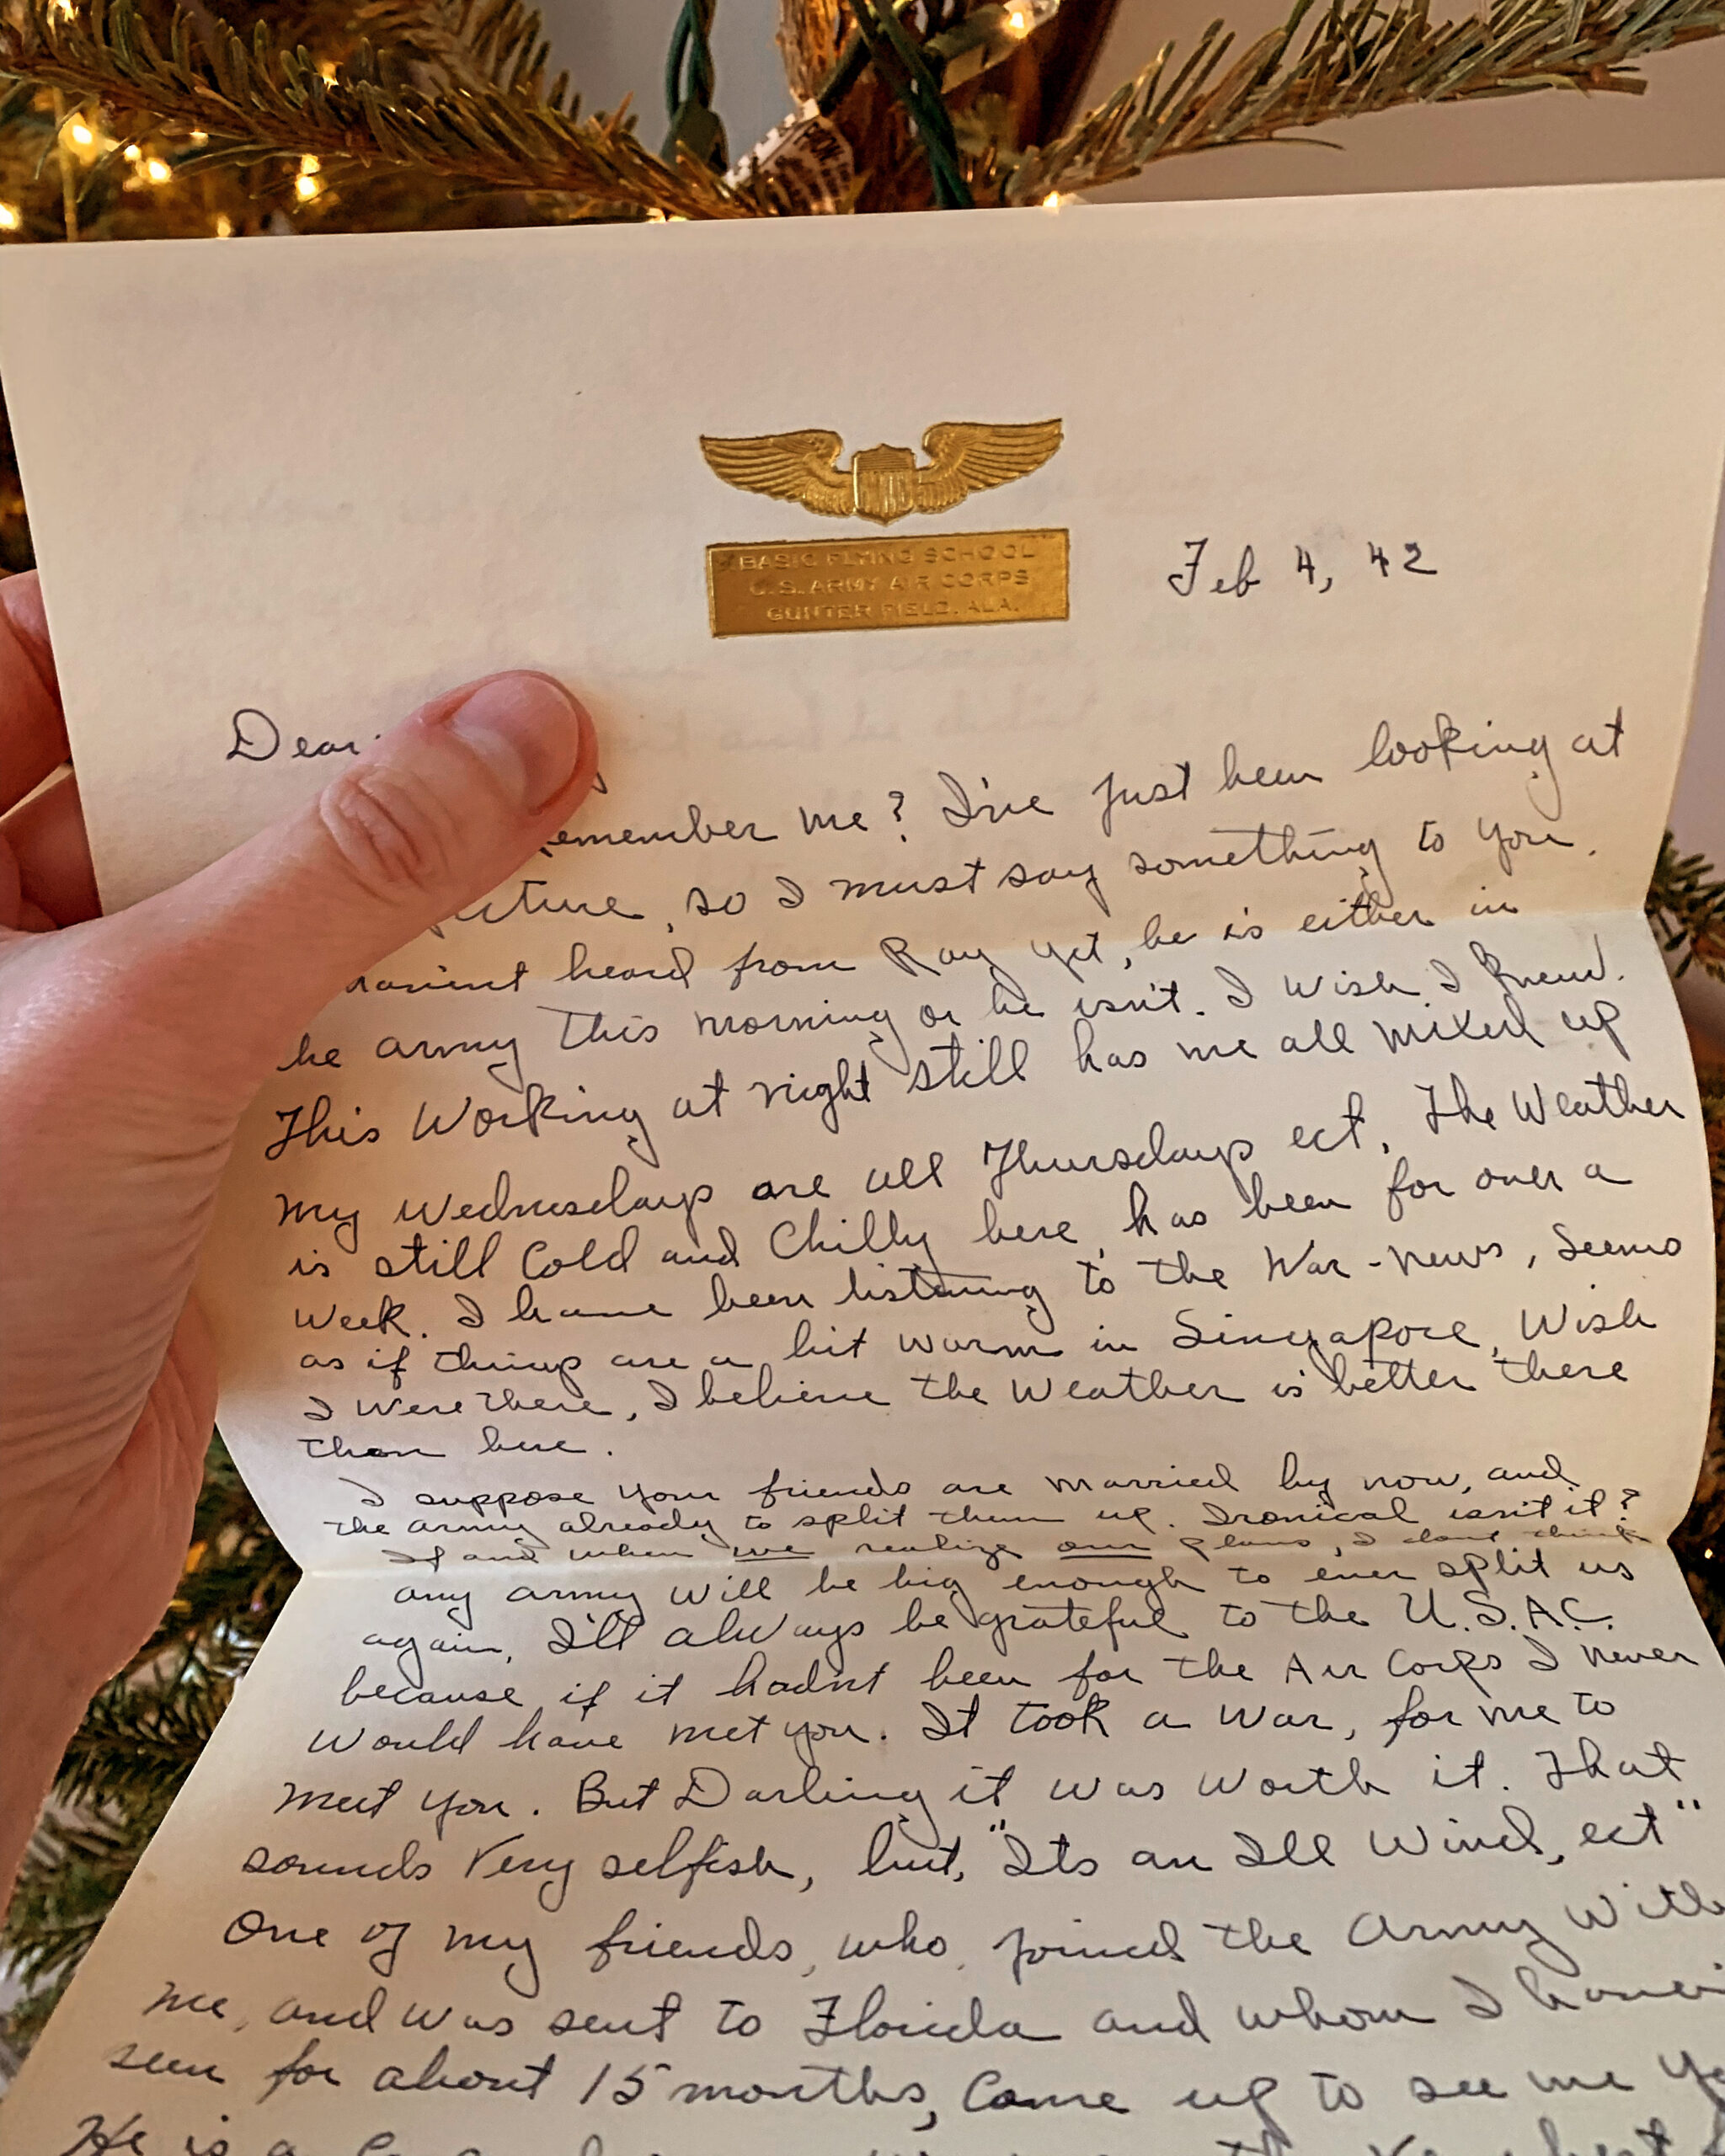 BASIC FLYING SCHOOL
U.S. ARMY AIR CORPS
GUNTER FIELD, ALA.
Feb 4, 42
Dear
emember me? I've just been looking at
icture, so I must say something to you.
havent heard from Ray yet, he is either in
he army this morning or he isn't. I wish I knew.
This Working at night still has me all mixed up
my Wednesdays are all Thursdays ect. The Weather
is still Cold and Chilly here, has been for over a
Week. I have been listening to the War-news, Seems
as if things are a bit warm in Singapore, Wish
I were there, I believe the Weather is better there
than here.
I suppose your friends are married by now, and
the army already to split them up. Ironical isn't it?
If and when we realize our plans, I dont think
any army will be big enough to ever split us
again, I'll always be grateful to the U.S.A.C.
because, if it hadn't been for the Air Corps I never
would have met you. It took a War, for me to
meet you. But Darling it was worth it. That
sounds Very selfish, but, "Its an Ill Wind, ect"
One of my friends, who, joined the Army With
me, and was sent to Florida and whom I haven
seen for about 15 months, Came up to see me ye
He is a